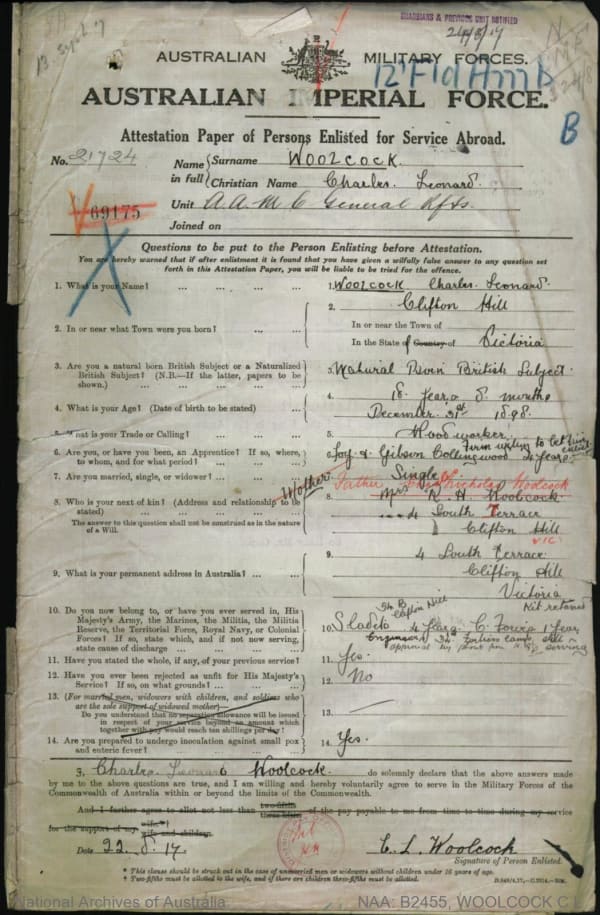 GUARDIANS & PREVIOUS UNIT NOTIFIED
24/8/17
13 Sept 17
AUSTRALIAN MILITARY FORCES.
12th Fld Amb
AUSTRALIAN IMPERIAL FORCE.
B
Attestation Paper of Persons Enlisted for Service Abroad.
No. 21724
Name in full { Surname WOOLCOCK
Christian Name Charles Leonard.
69175
Unit A.A.M.C General Rfts.
Joined on
Questions to be put to the Person Enlisting before Attestation.
You are hereby warned that if after enlistment it is found that you have given a wilfully false answer to any question set
forth in this Attestation Paper, you will be liable to be tried for the offence.
1. What is your Name? ... ... ... 1. WOOLCOCK Charles Leonard
2. Clifton Hill
2. In or near what Town were you born? ... ... In or near the Town of
In the State of Country of Victoria
3. Are you a natural born British Subject or a Naturalized
British Subject? (N.B.—If the latter, papers to be
shown.) ... ... ... 3. Natural Born British Subject.
4. 18 years 8 months
4. What is your Age? (Date of birth to be stated) ... December 31st 1898.
5. What is your Trade or Calling? ... ... 5. Woodworker
6. Are you, or have you been, an Apprentice? If so, where,
to whom, and for what period? ... ... 6. Foy & Gibson Collingwood 4 years
Firm willing to let him enlist
7. Are you married, single, or widower? ... ... 7. Single
Mother
Father Nicholas Woolcock
8. Who is your next of kin? (Address and relationship to be
stated) ... ... ... 8. Mrs K. H. Woolcock
The answer to this question shall not be construed as in the nature
of a Will.
4 South Terrace
Clifton Hill
VIC.
9. What is your permanent address in Australia? ... ... 9. 4 South Terrace
Clifton Hill
Victoria
Kit retained
10. Do you now belong to, or have you ever served in, His
Majesty's Army, the Marines, the Militia, the Militia
Reserve, the Territorial Force, Royal Navy, or Colonial
Forces? If so, state which, and if not now serving,
state cause of discharge ... ... ...
34 B Clifton Hill
10. S Cadets 4 years C. Forces 1 year
Engineers still serving
11. Have you stated the whole, if any, of your previous service? 11. Yes.
12. Have you ever been rejected as unfit for His Majesty's
Service? If so, on what grounds? ... ... 12. No
13. (For married men, widowers with children, and soldiers who
are the sole support of widowed mother)—
Do you understand that no separation allowance will be issued
in respect of your service beyond an amount which
together with pay would reach ten shillings per day? 13. —
14. Are you prepared to undergo inoculation against small pox
and enteric fever? ... ... ... 14. Yes.
I, Charles Leonard Woolcock do solemnly declare that the above answers made
by me to the above questions are true, and I am willing and hereby voluntarily agree to serve in the Military Forces of the
Commonwealth of Australia within or beyond the limits of the Commonwealth.
And I further agree to allot not less than two-fifths three-fifths of the pay payable to me from time to time during my service
for the support of my wife wife and children.
Date 22.8.17.
C. L. Woolcock
Signature of Person Enlisted.
* This clause should be struck out in the case of unmarried men or widowers without children under 16 years of age.
† Two-fifths must be allotted to the wife, and if there are children three-fifths must be allotted.
National Archives of Australia
NAA: B2455, WOOLCOCK C L